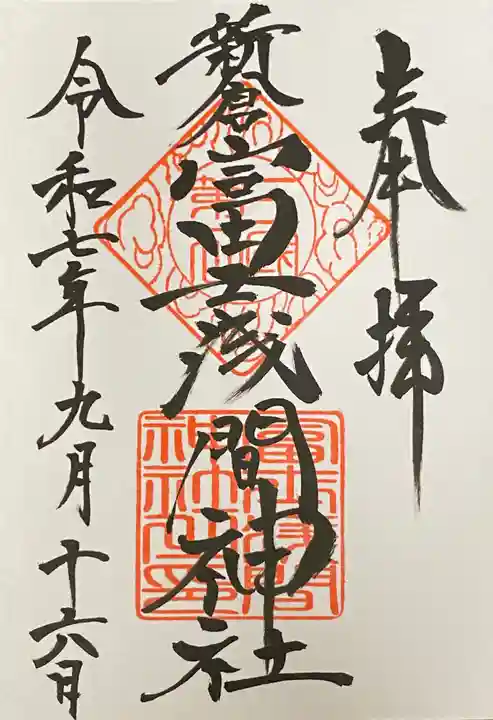 奉拝
新倉富士浅間神社
令和七年九月十六日
冨士浅間
神社之印